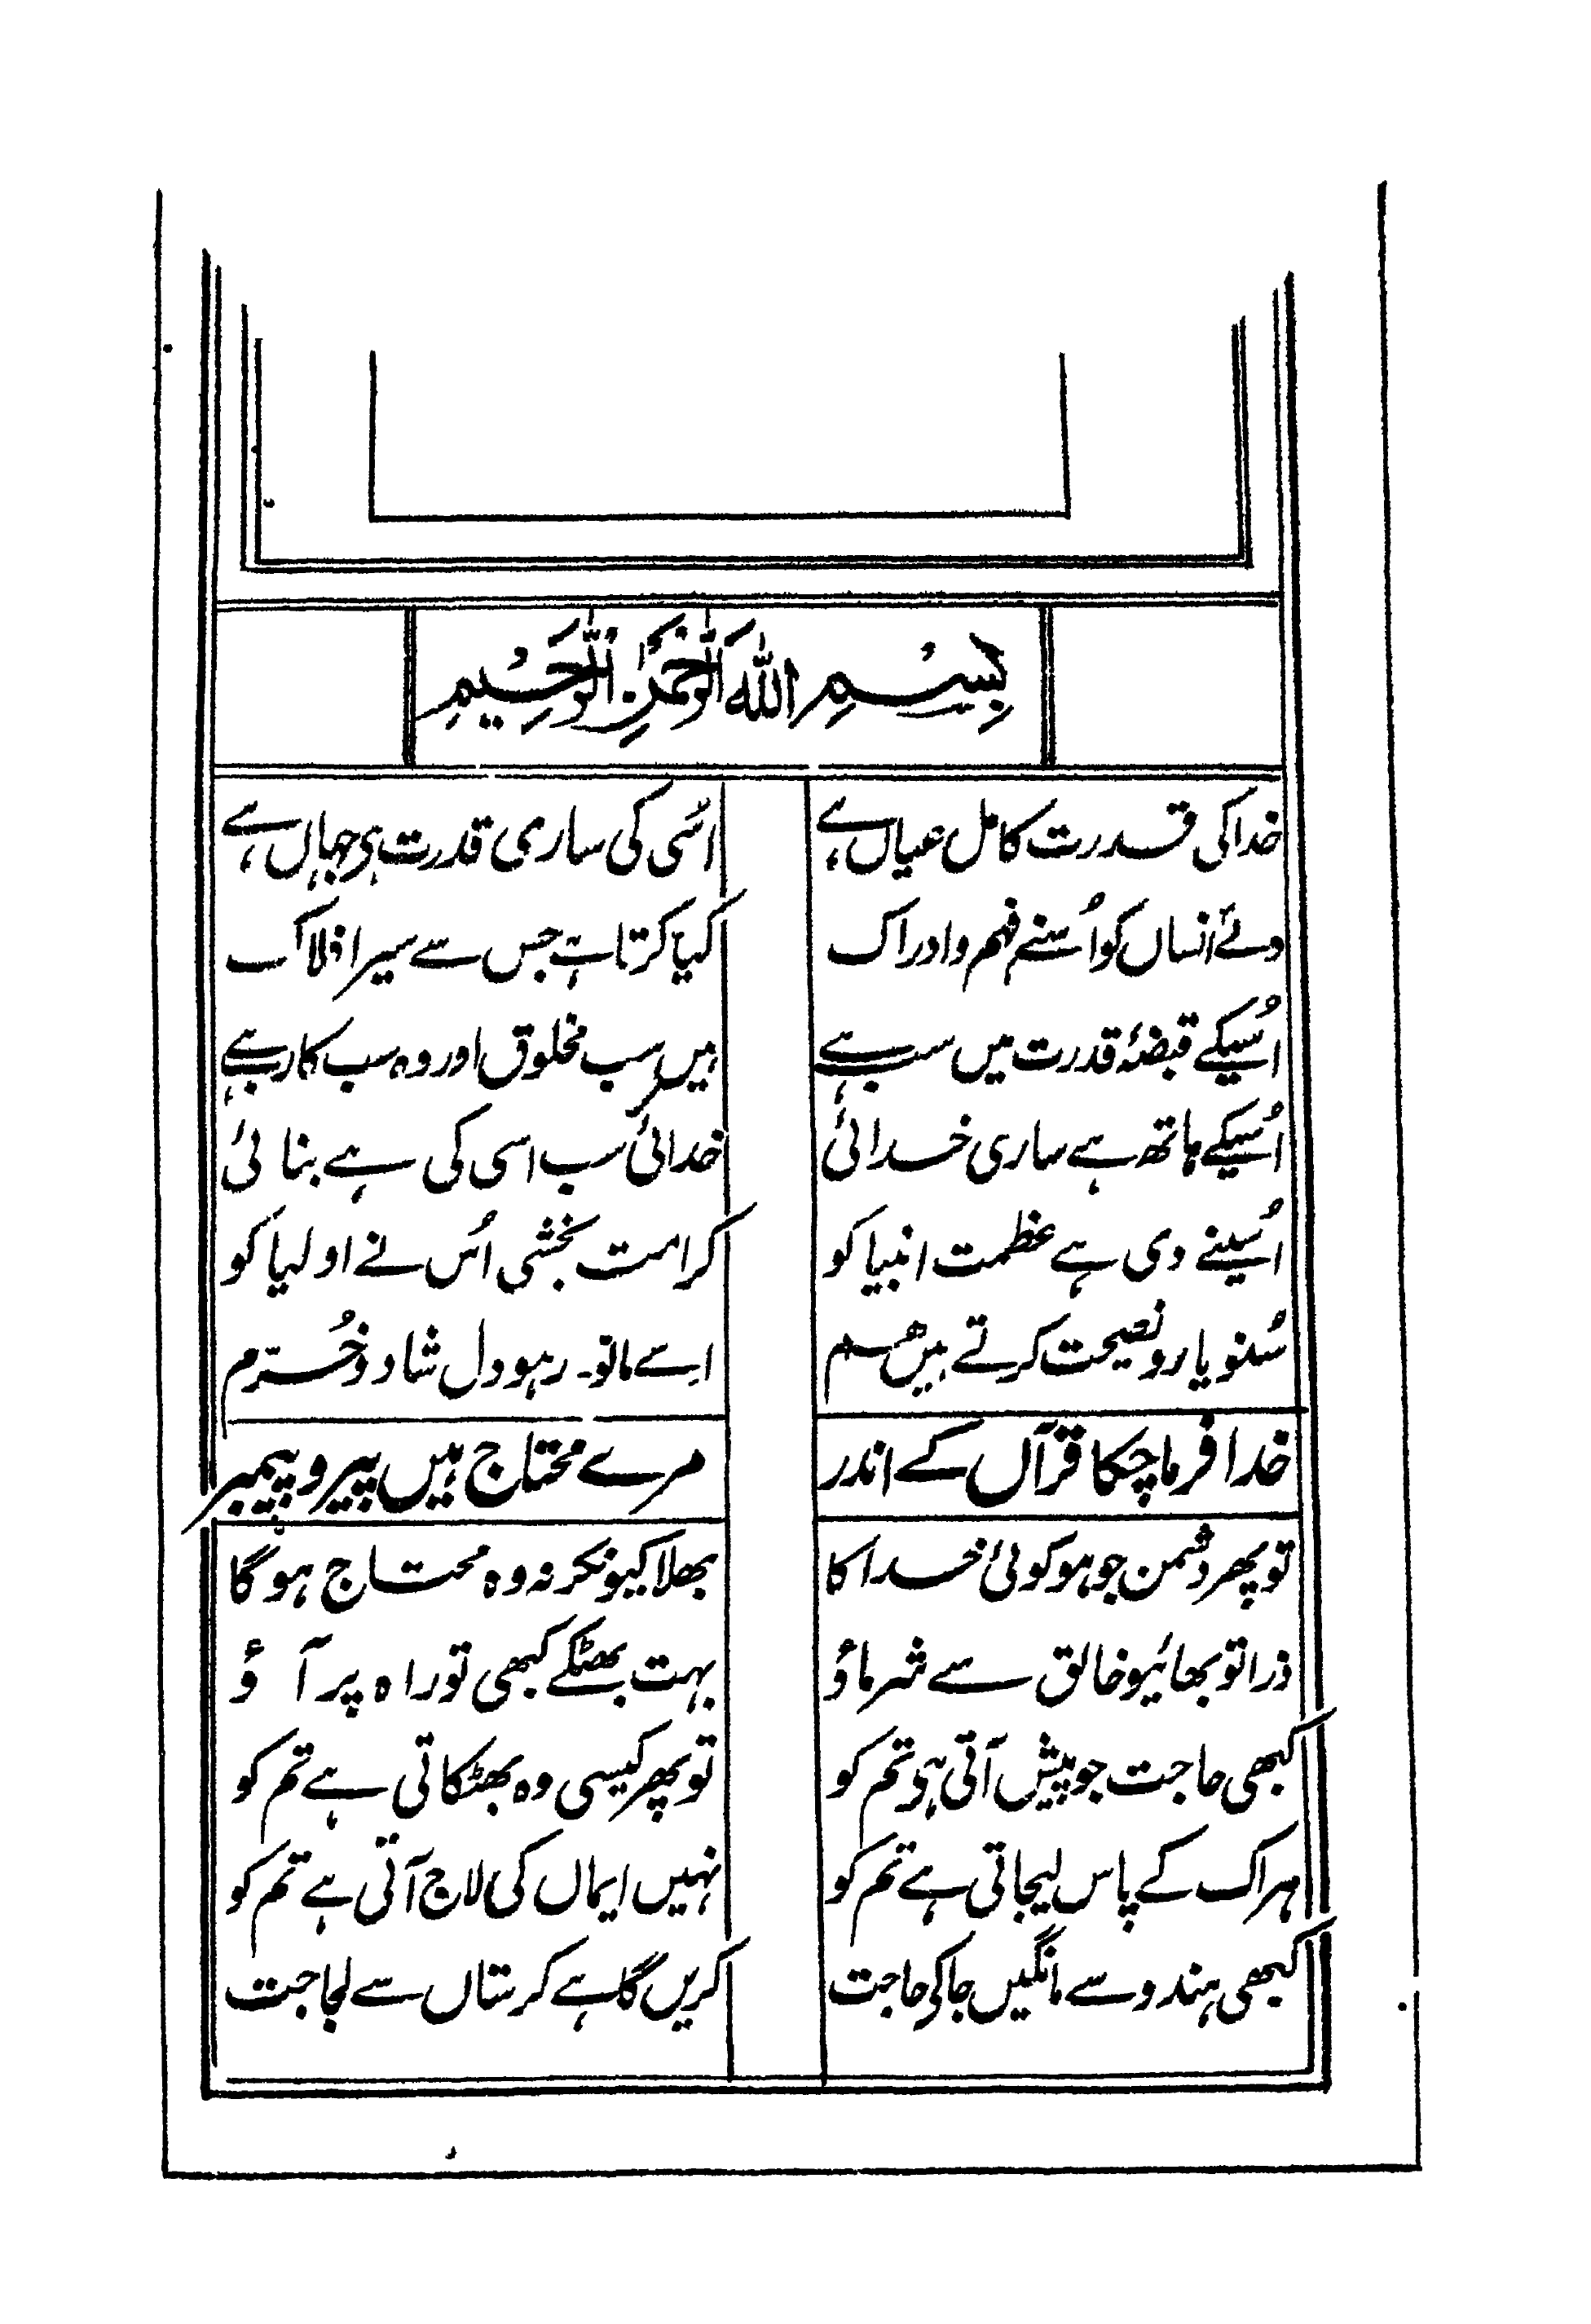 بِسْمِ اللّٰهِ الرَّحْمٰنِ الرَّحِيْمِ
خدا کی قدرت کامل عیاں ہے اسُی کی ساری قدرت ہی جہاں ہے
دئے انساں کو اُسنے فہم و ادراک کیا کرتا ہے جس سے سیر افلاک
اُسیکے قبضۂ قدرت میں سب ہے ہیں سب مخلوق اور وہ سب کا رب ہے
اُسیکے ہاتھ ہے ساری خدائی خدائی سب اسی کی ہے بنائی
اُسینے دی ہے عظمت انبیا کو کرامت بخشی اُس نے اولیا کو
سُنو یارو نصیحت کرتے ہیں ہم اسے مانو۔ رہو دل شاد و خُرّم
خدا فرما چکا قرآں کے اندر مرے محتاج ہیں پیر و پیمبر
تو پھر دشمن جو ہو کوئی خدا کا بھلا کیونکر نہ وہ محتاج ہوگا
ذرا تو بھائیو خالق سے شرماؤ بہت بھٹکے کبھی تو راہ پر آؤ
کبھی حاجت جو پیش آتی ہی تم کو تو پھر کیسی وہ بھٹکاتی ہے تم کو
ہر اک کے پاس لیجاتی ہے تم کو نہیں ایماں کی لاج آتی ہے تم کو
کبھی ہندو سے مانگیں جاکی حاجت کریں گاہے کرستاں سے لجاجت